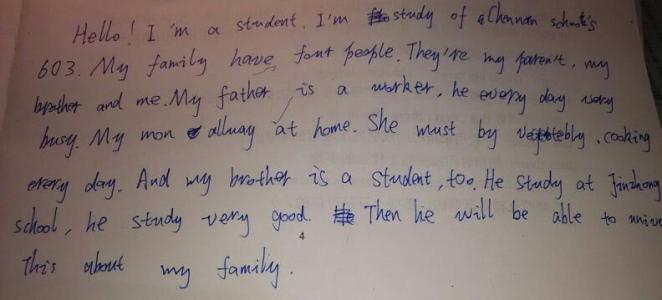 Hello! I'm a student. I'm study of Chennan school's
603. My family have four people. They're my parent, my
brother and me. My father is a worker, he every day very
busy. My mon allway at home. She must by vegetebly, cooking
every day. And my brother is a student, too. He study at Jinzhong
school, he study very good. Then he will be able to
This about my family.
4